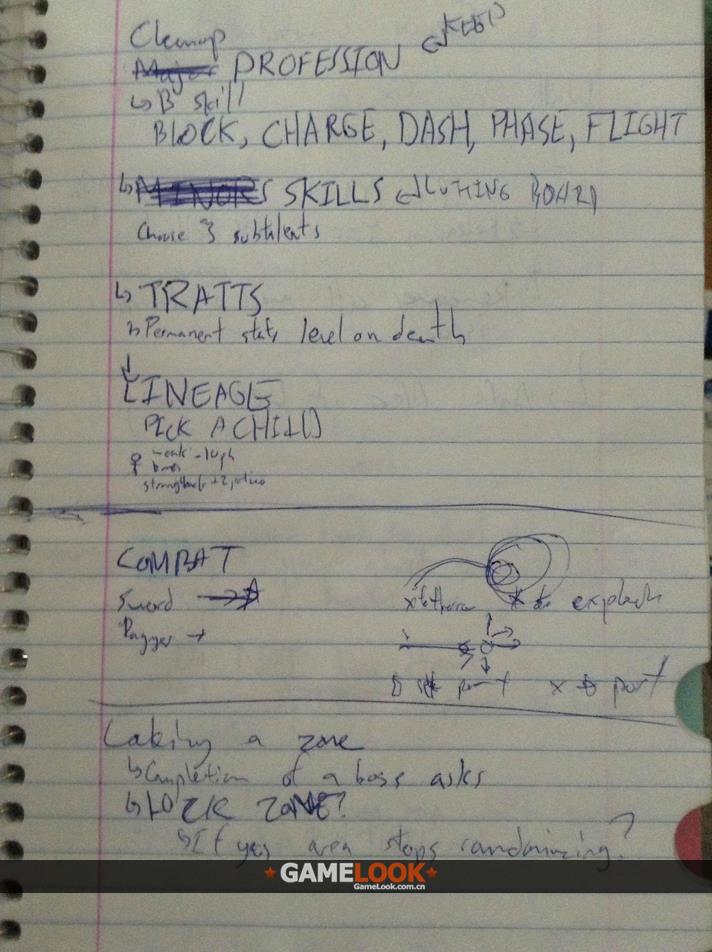 Cleanup
Major PROFESSION ↵ KEEP
↳ B skill
BLOCK, CHARGE, DASH, PHASE, FLIGHT
↳ MINORS SKILLS ↵ CUTTING BOARD
Choose 3 subtalents
↳ TRAITS
↳ Permanent stats level on death
↓
LINEAGE
PICK A CHILD
♀
COMBAT
Sword →
Dagger →
x to throw x to explode
point x to port
Locking a zone
↳ Completion of a boss asks
↳ LOCK ZONE?
↳ If yes area stops randomizing?
GAMELOOK
GameLook.com.cn